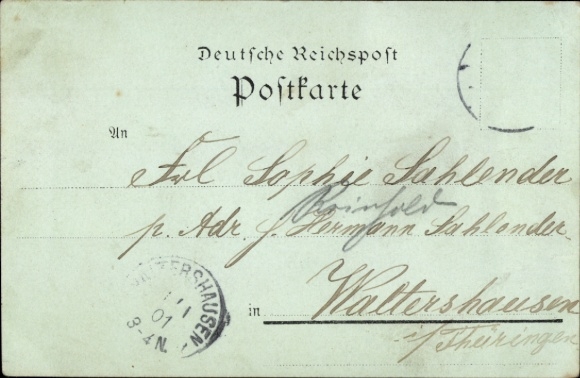 Deutsche Reichspost
Postkarte
An
Frl Sophie Sahlender
Reinhold
p. Adr. H. Hermann Sahlender
in Waltershausen
i/Thüringen
WALTERSHAUSEN
01
3-4N.